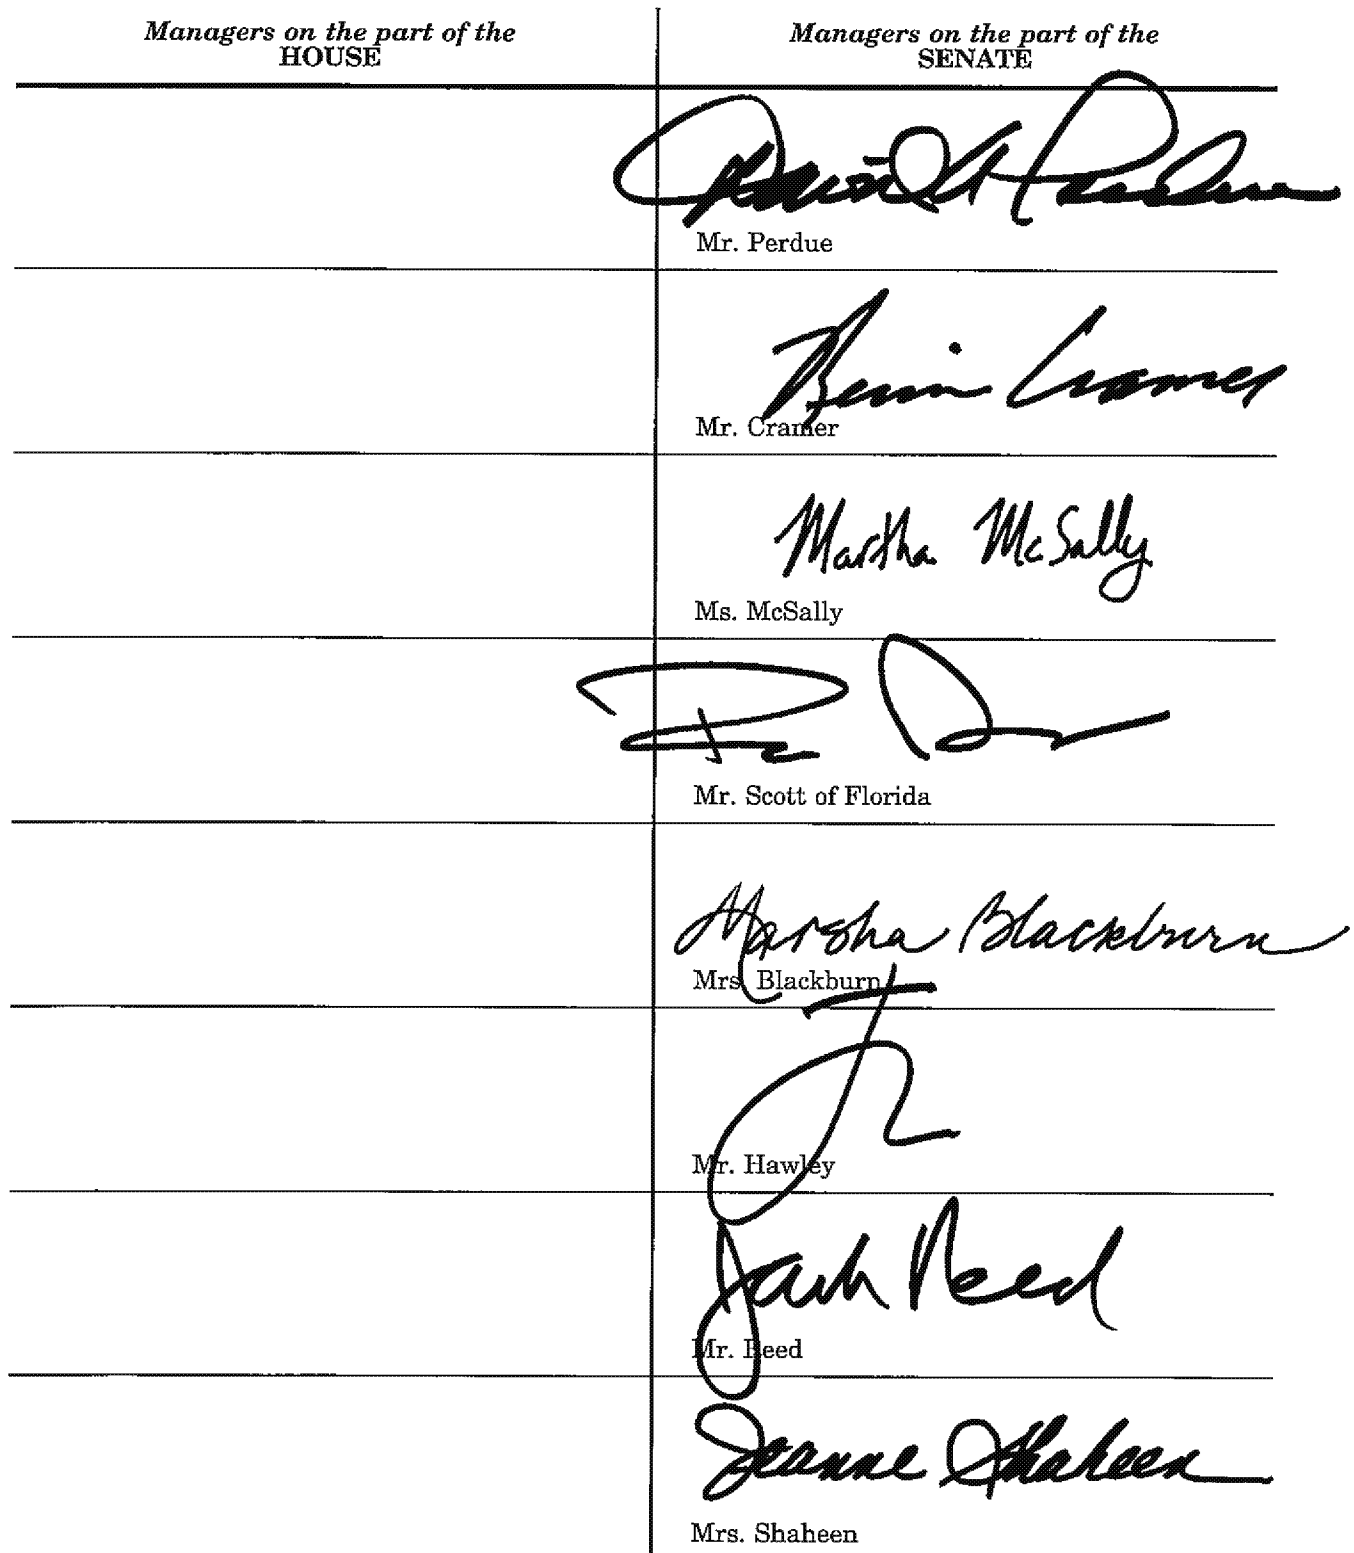 Managers on the part of the
HOUSE
Managers on the part of the
SENATE
Mr. Perdue
Kevin Cramer
Mr. Cramer
Martha McSally
Ms. McSally
Mr. Scott of Florida
Marsha Blackburn
Mrs. Blackburn
Mr. Hawley
Jack Reed
Mr. Reed
Jeanne Shaheen
Mrs. Shaheen